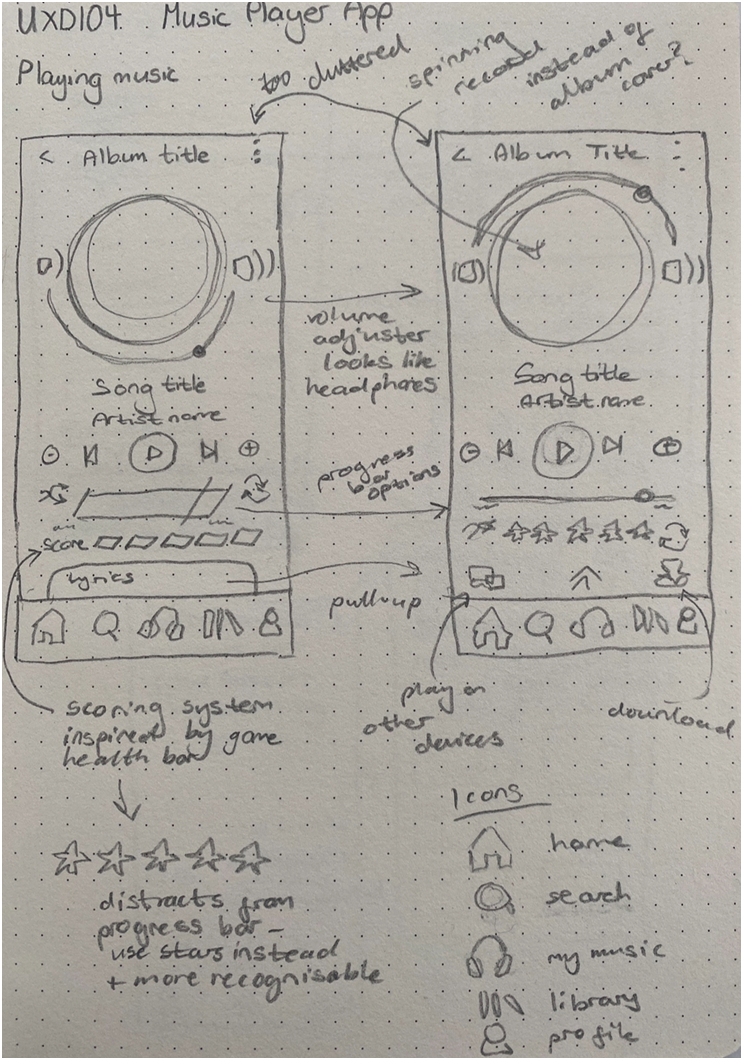 UXD104 Music Player App
Playing music
too cluttered
spinning
record
instead of
album
cover?
< Album title
Song title
Artist name
score
Lyrics
volume
adjuster
looks like
headphones
progress
bar
options
pull up
< Album Title
Song title
Artist name
play on
other
devices
download
scoring system
inspired by game
health bar
distracts from
progress bar –
use stars instead
+ more recognisable
Icons
home
search
my music
library
profile